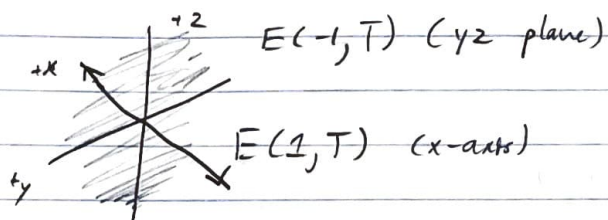 +z
E(-1,T) (yz plane)
+x
E(1,T) (x-axis)
+y